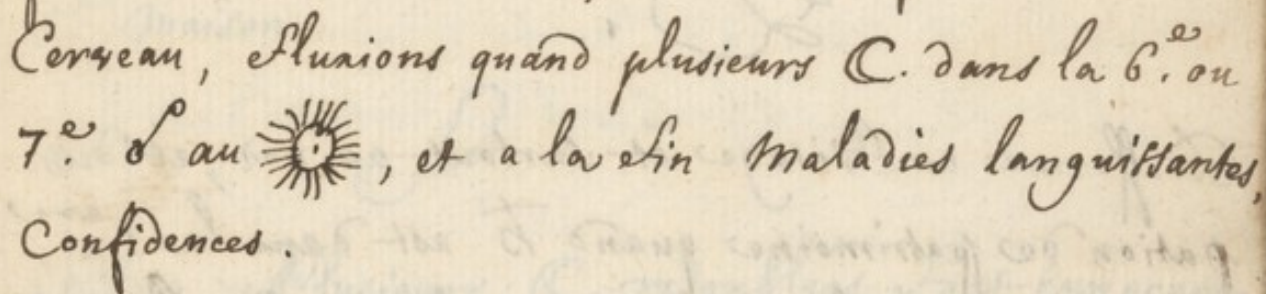 Cerveau, fluxions quand plusieurs ☾. dans la 6.e ou
7.e ☍ au ☉, et a la fin Maladies languissantes,
Confidences.